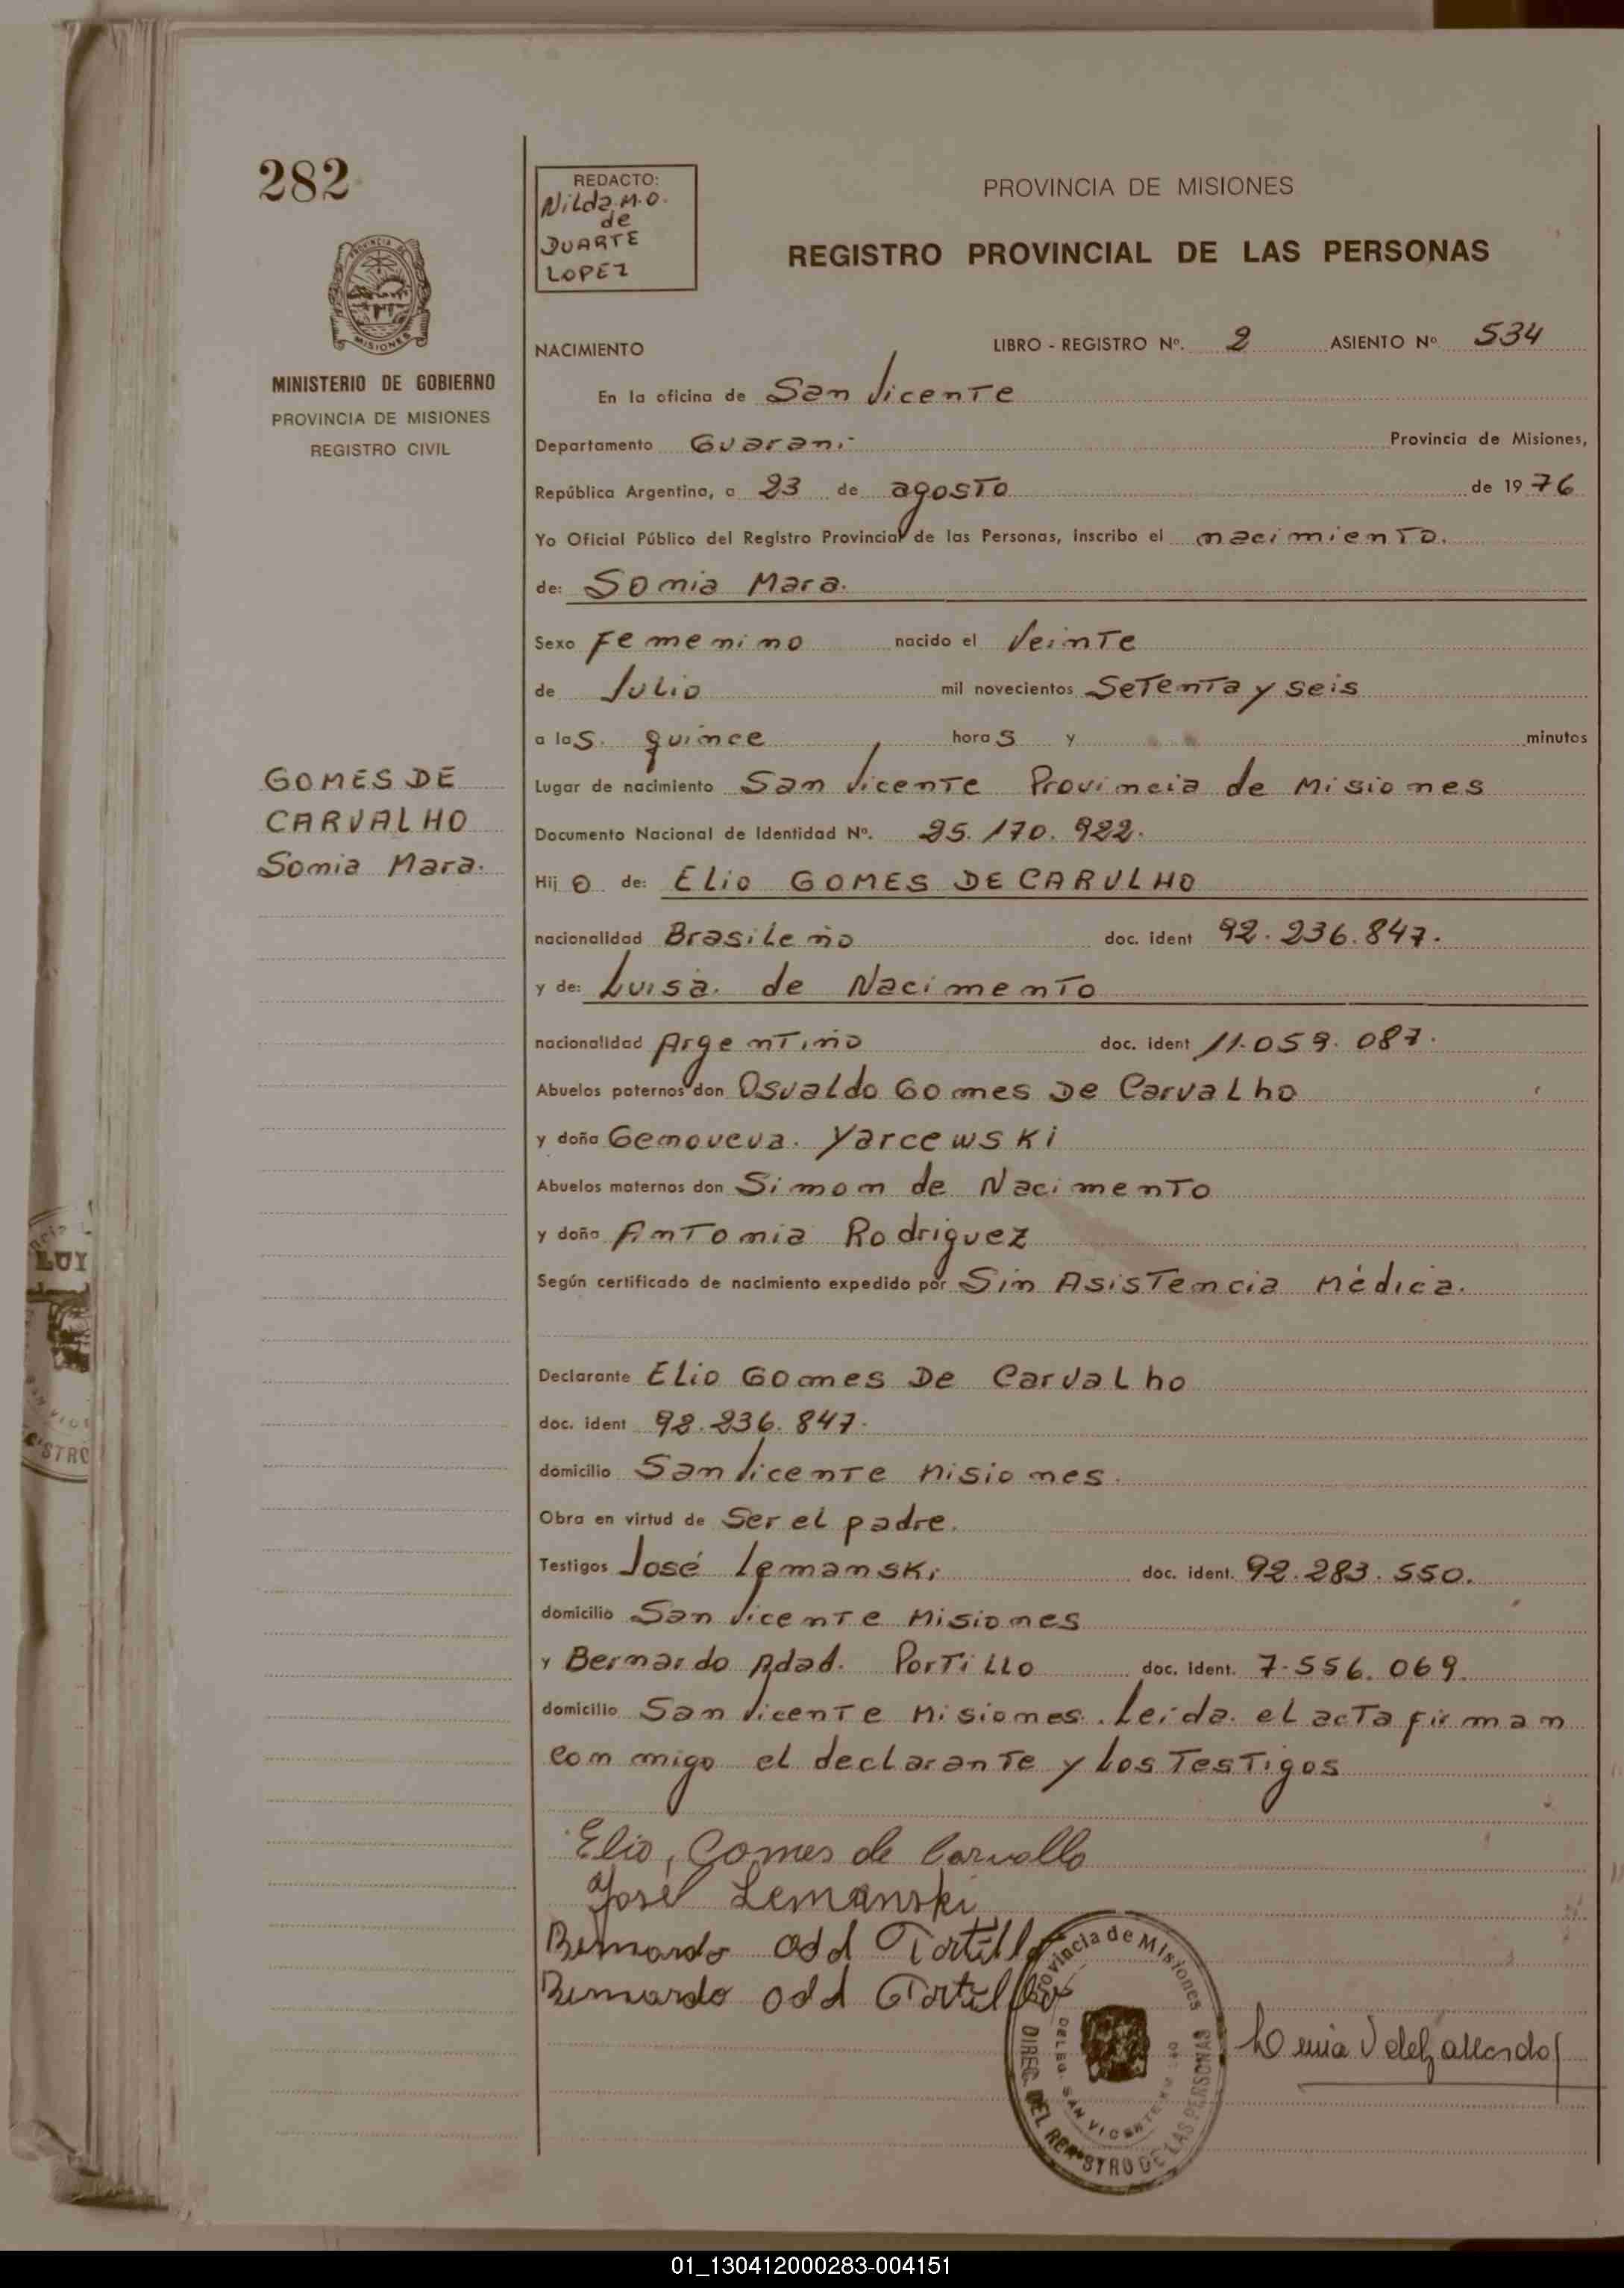 282
REDACTO:
Nilda M.O.
de
DUARTE
LOPEZ
PROVINCIA DE MISIONES
REGISTRO PROVINCIAL DE LAS PERSONAS
PROVINCIA DE
MISIONES
MINISTERIO DE GOBIERNO
PROVINCIA DE MISIONES
REGISTRO CIVIL
NACIMIENTO LIBRO - REGISTRO Nº. 2 ASIENTO Nº 534
En la oficina de San Vicente
Departamento Guarani Provincia de Misiones,
República Argentina, a 23 de agosto de 1976
Yo Oficial Público del Registro Provincial de las Personas, inscribo el nacimiento.
de: Sonia Mara.
Sexo Femenino nacido el Veinte
de Julio mil novecientos Setenta y seis
a las. quince horas y minutos
GOMES DE
CARVALHO
Sonia Mara.
Lugar de nacimiento San Vicente Provincia de Misiones
Documento Nacional de Identidad Nº. 25.170.922.
Hijo de: Elio GOMES DE CARULHO
nacionalidad Brasileño doc. ident 92.236.847.
y de: Luisa. de Nacimento
nacionalidad Argentino doc. ident 11.059.087.
Abuelos paternos don Osvaldo Gomes De Carvalho
y doña Genoveva. Yarcewski
Abuelos maternos don Simon de Nacimento
y doña Antonia Rodriguez
Según certificado de nacimiento expedido por Sin Asistencia Médica.
Declarante Elio Gomes De Carvalho
doc. ident 92.236.847.
domicilio San Vicente Misiones.
Obra en virtud de Ser el padre.
Testigos José Lemanski doc. ident. 92.283.550.
domicilio San Vicente Misiones
y Bernardo Adad. Portillo doc. ident. 7.556.069.
domicilio San Vicente Misiones. Leida el acta firman
con migo el declarante y los Testigos
Elio, Gomes de Carvallo
José Lemanski
Bernardo odd Portillo
Bernardo odd Portillo
Provincia de Misiones
DIREC. DEL REGISTRO DE LAS PERSONAS
SAN VICENTE
LUY
STRO
01_130412000283-004151